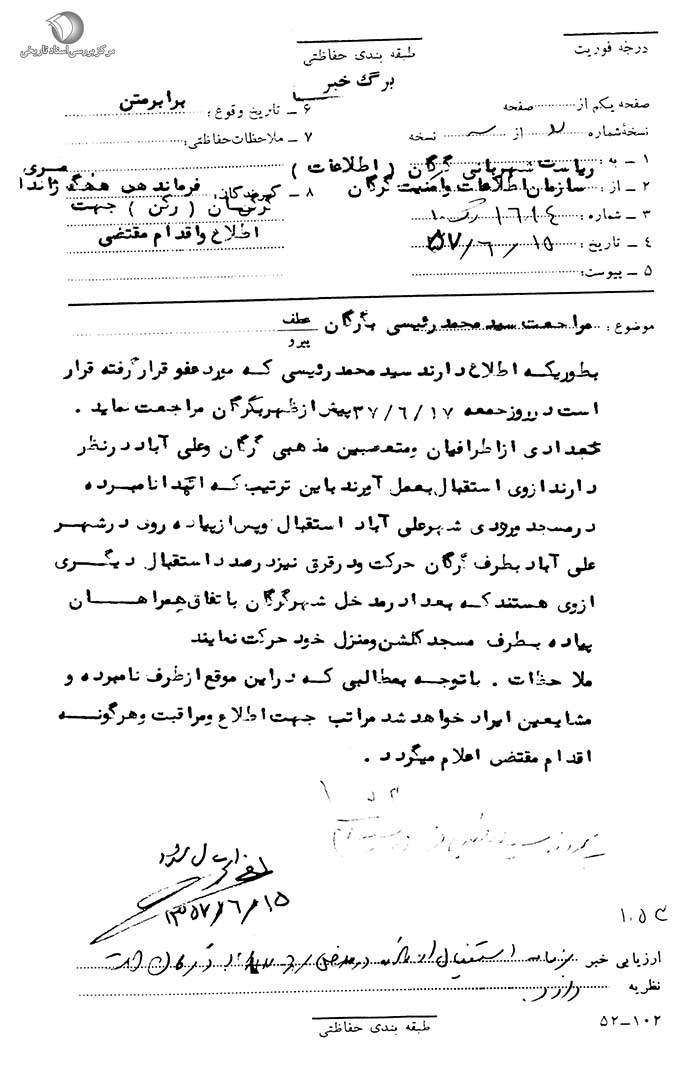 مرکز بررسی اسناد تاریخی
درجه فوریت
طبقه بندی حفاظتی
برگ خبر
صفحه یکم از صفحه
نسخهٔ شماره از نسخه
۱ ـ به : ریاست شهربانی گرگان ( اطلاعات )
۲ ـ از : سازمان اطلاعات وامنیت گرگان
۳ ـ شماره :
۴ ـ تاریخ : ۱۵/۶/۵۷
۵ ـ پیوست:
۶ ـ تاریخ وقوع : برابر متن
۷ ـ ملاحظات حفاظتی:
۸ ـ گیرندگان: فرماندهی هنگ ژاندارمری
گرگان ( رکن ) جهت
اطلاع واقدام مقتضی
موضوع : مراجعت سید محمد رئیسی بگرگان عطف
پیرو
بطوریکه اطلاع دارند سید محمد رئیسی که مورد عفو قرار گرفته قرار
است در روز جمعه ۳۷/۶/۱۷ پیش از ظهر بگرگان مراجعت نماید .
تعدادی از اطرافیان ومتعصبین مذهبی گرگان وعلی آباد در نظر
دارند از وی استقبال بعمل آورند باین ترتیب که ابتدا نامبرده
در مسجد ورودی شهر علی آباد استقبال وپس از پیاده روی در شهر
علی آباد بطرف گرگان حرکت ودر قرق نیز در صدد استقبال دیگری
از وی هستند که بعد از مدخل شهر گرگان با تفاق همراهان
پیاده بطرف مسجد گلشن ومنزل خود حرکت نمایند
ملاحظات . با توجه بمطالبی که در این موقع از طرف نامبرده و
مشایعین ایراد خواهد شد مراتب جهت اطلاع ومراقبت وهرگونه
اقدام مقتضی اعلام میگردد .
۱۳۵۷/۶/۱۵
ارزیابی خبر
نظریه
طبقه بندی حفاظتی
۵۲ــ۱۰۲